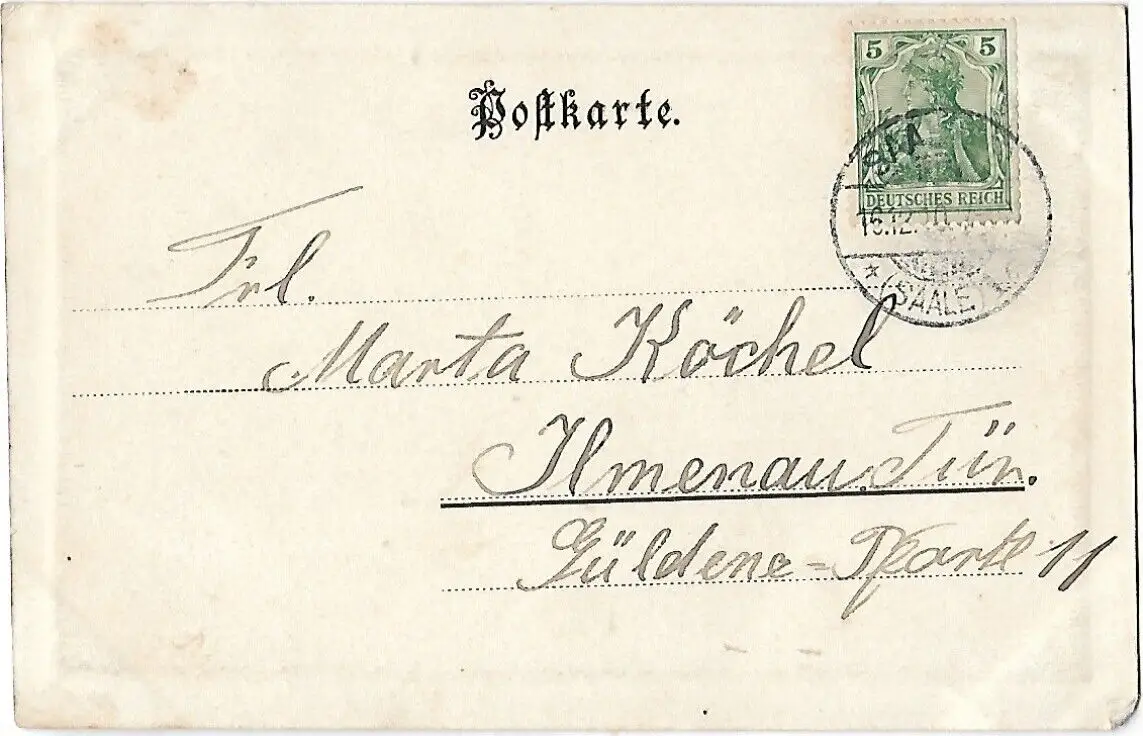 Postkarte.
5 5
DEUTSCHES REICH
16.12.
(SAALE)
Frl.
Marta Köchel
Ilmenau. Tür.
Güldene-Pfarte 11